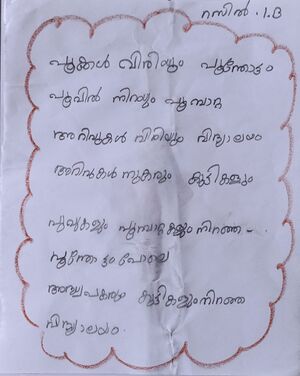 റസിൽ . 1.B
പൂക്കൾ വിരിയും പൂന്തോട്ടം
പൂവിൽ നിറയും പൂമ്പാറ്റ
അറിവുകൾ വിരിയും വിദ്യാലയം
അറിവുകൾ നുകരും കുട്ടികളും
പൂവുകളും പൂമ്പാറ്റകളും നിറഞ്ഞ -
പൂന്തോട്ടം പോലെ
അദ്ധ്യപകരും കുട്ടികളും നിറഞ്ഞ
വിദ്യാലയം.